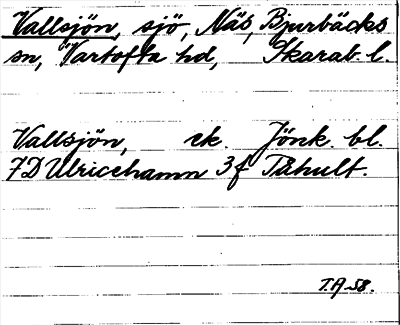 Vallsjön, sjö, Näs, Bjurbäcks
sn, Vartofta hd, Skarab. l.
Vallsjön, ek. Jönk. bl.
7D Ulricehamn 3f Påhult.
T.A. 58.